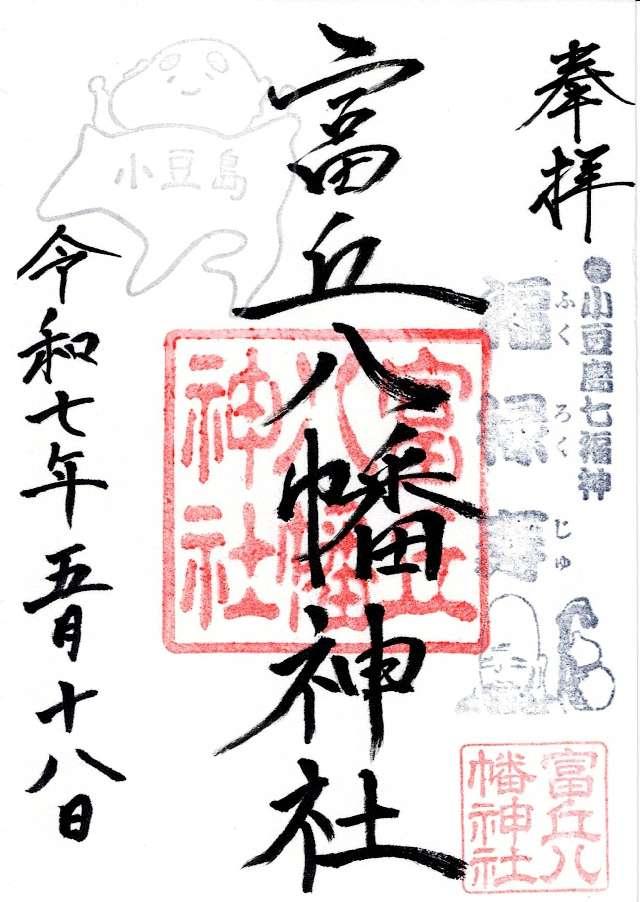 奉拝
●小豆島七福神
福禄寿
ふく ろく じゅ
富丘八幡神社
富丘八幡神社
富丘八幡神社
小豆島
令和七年五月十八日